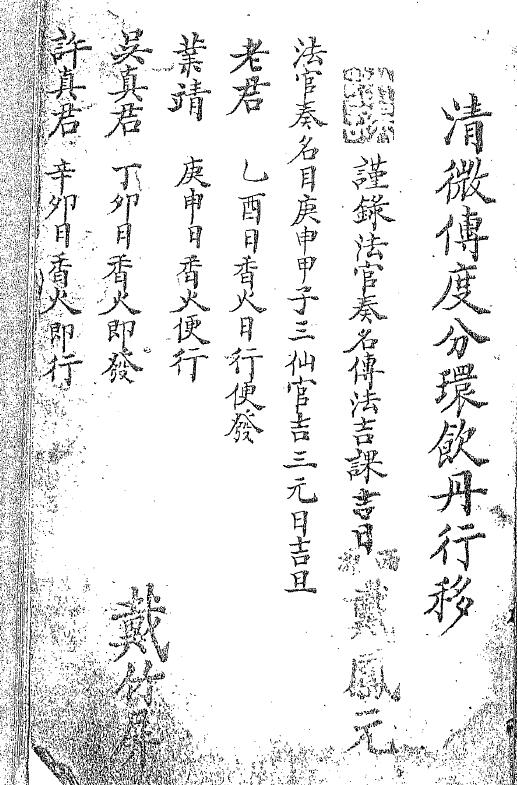 清微傳度分環飲丹行移
謹錄法官奏名傳法吉課吉日
戴鳳元
法官奏名目庚申甲子三仙官吉三元日吉旦
老君 乙酉日香火日行便發
葉靖 庚申日香火便行
吳真君 丁卯日香火即發
戴竹
許真君 辛卯日香火即行